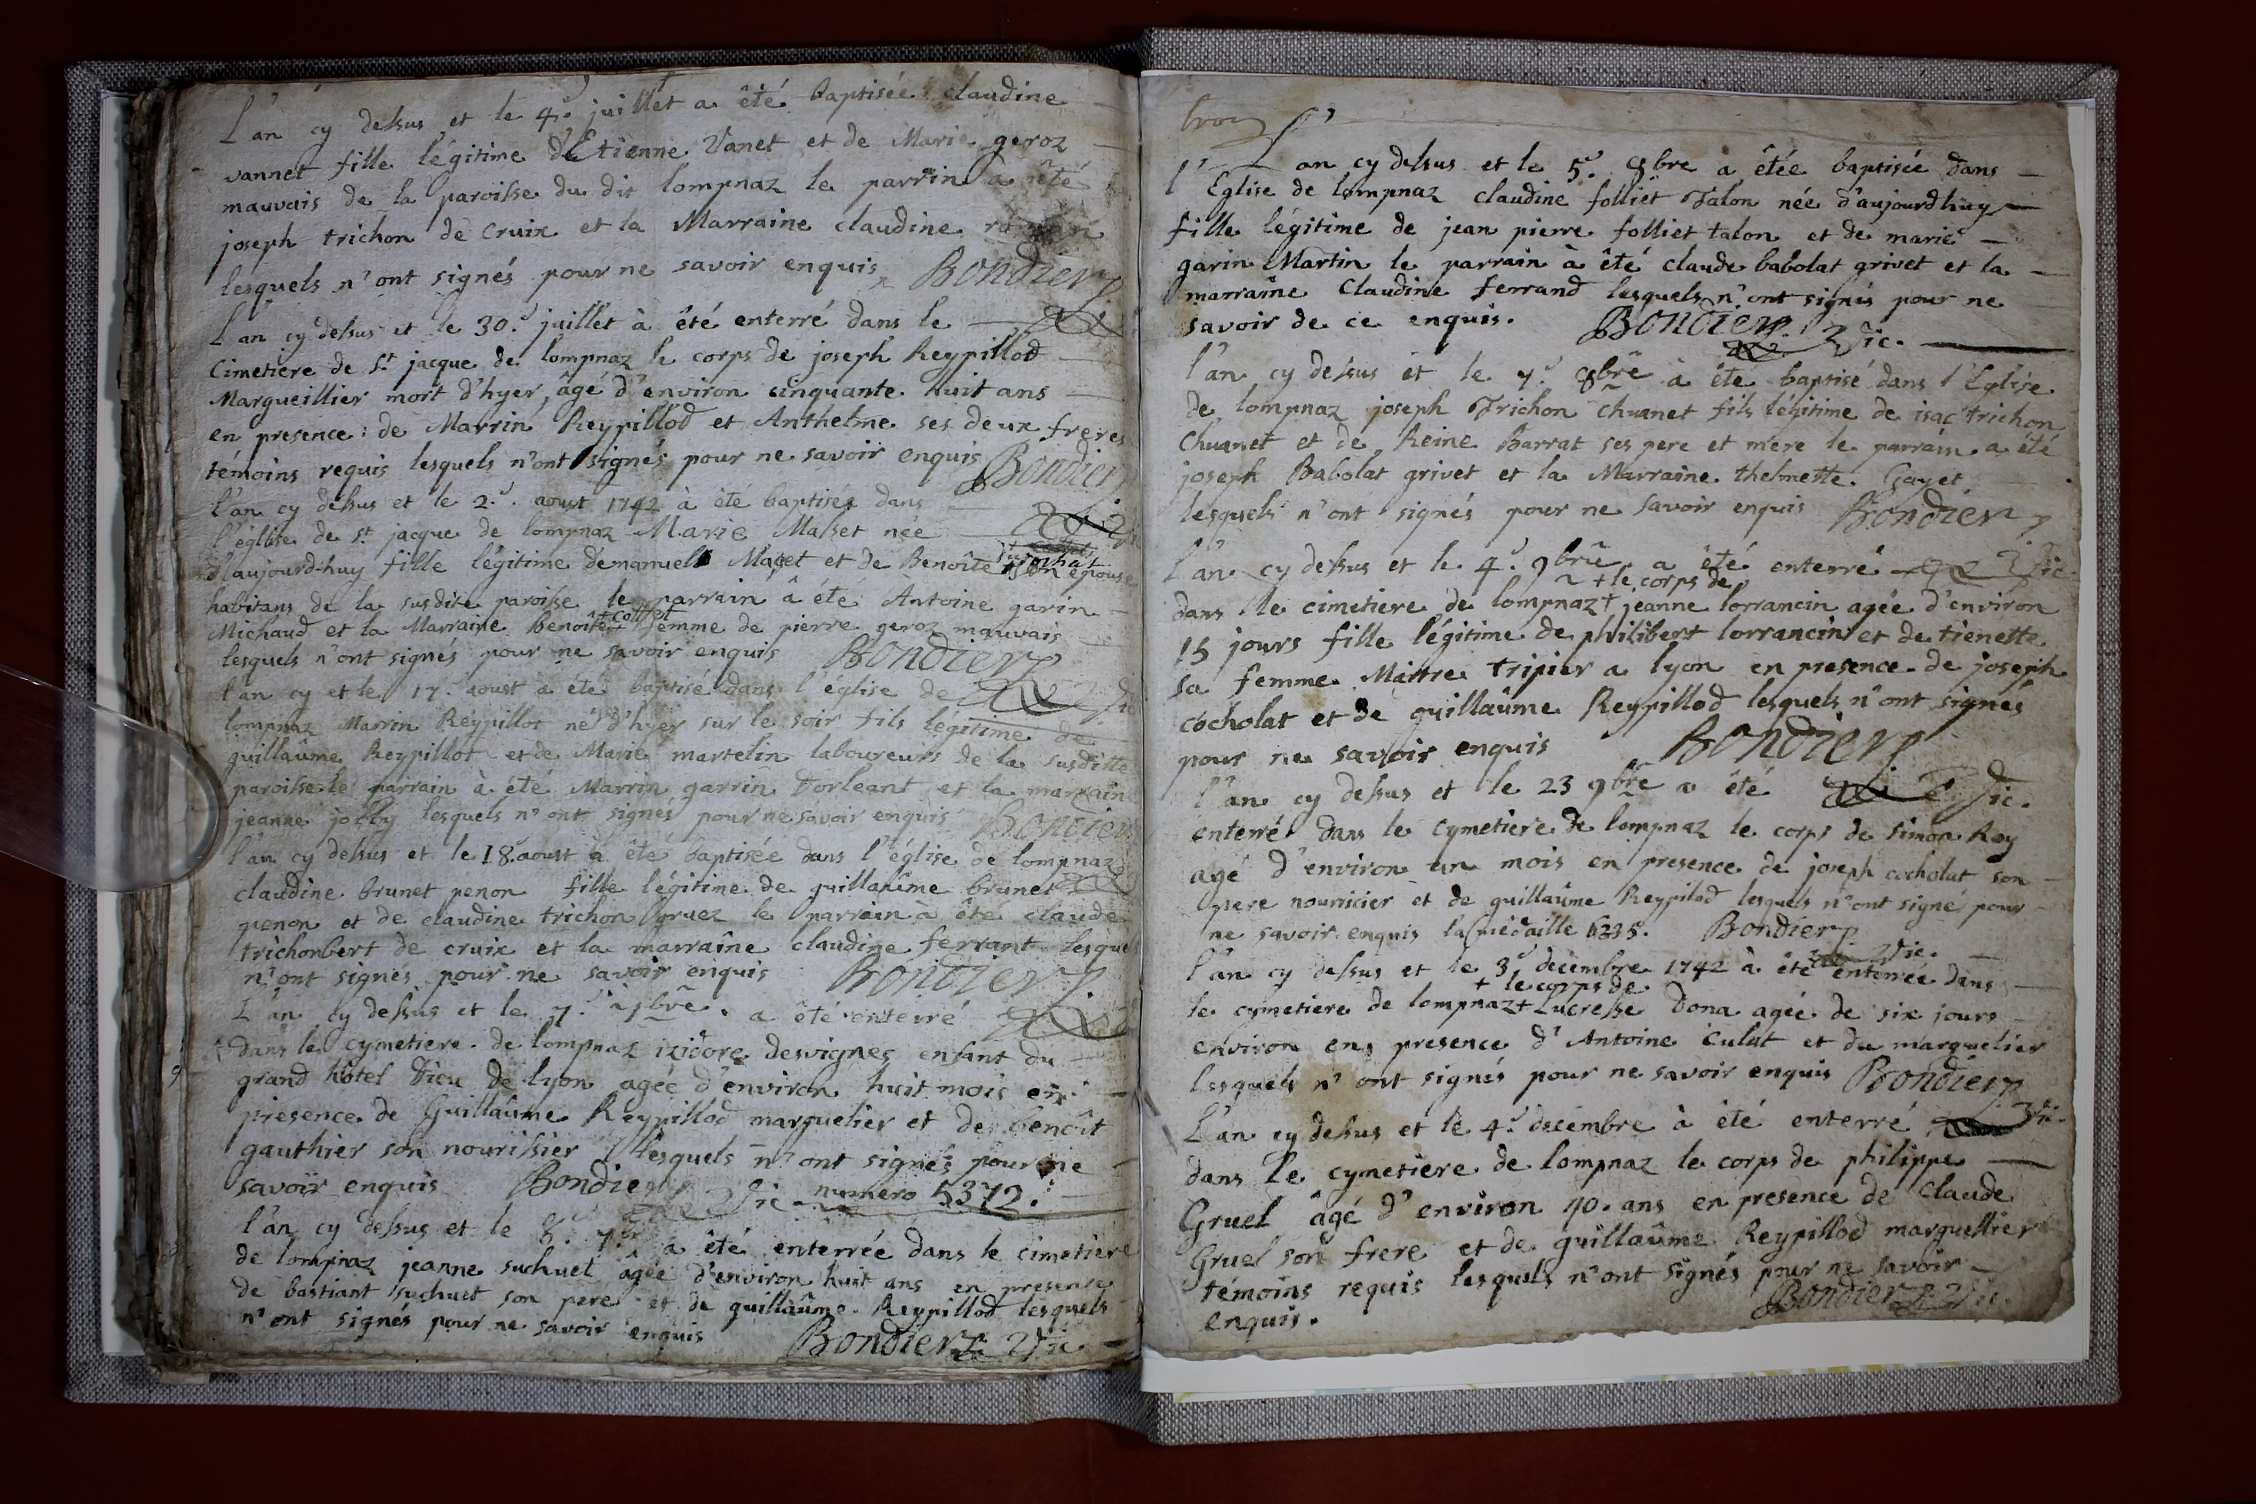 L'an cy dessus et le 4.e juillet a êté baptisée claudine
vannet fille légitime d'Etienne Vanet et de Marie geroz
mauvais de la paroisse du dit lompnaz le parrin a êté
joseph trichon de cruix et la Marraine claudine
lesquels n'ont signés pour ne savoir enquis Bondier
L'an cy dessus et le 30.e juillet à êté enterré dans le
Cimetiere de St jacque de lompnaz le corps de joseph Reypillod
Margueillier mort d'hyer, âgé d'environ cinquante huit ans
en presence de Marrin Reypillod et Anthelme ses deux freres
témoins requis lesquels n'ont signés pour ne savoir enquis Bondier
l'an cy dessus et le 2.e aoust 1742 à êté baptisée dans
l'église de St jacque de lompnaz Marie Masset née
d'aujourd-huy fille légitime demanuell Maçet et de Benoîte son epouse
habitans de la susdite paroisse le parrain â été Antoine garin
Michaud et la Marraine benoite + cottet femme de pierre geroz mauvais
lesquels n'ont signés pour ne savoir enquis Bondier
l'an cy et le 17.e aoust a été baptisé dans l'église de
lompnaz Marrin Reypillot né d'hyer sur le soir fils légitime de
guillaûme Reypillot et de Marie martelin laboureurs de la susditte
paroisse le parrain à été Marrin garrin Dorleant et la marrain
jeanne jolly lesquels n'ont signés pour ne savoir enquis Bondier
l'an cy dessus et le 18. aoust a êté baptisée dans l'église de lompnaz
claudine brunet penon fille légitime de guillaûme brunet
penon et de claudine trichon gruez le parrain à êté claude
trichonbert de cruix et la marraîne claudine ferrant lesquel
n'ont signés pour ne savoir enquis Bondier
L'an cy dessus et le 7.e 7bre. a êté enterré
dans le cymetiere de lompnaz izidore desvignes enfant du
grand hôtel Dieu de lyon agée d'environ huit mois en
presence de Guillaûme Reypillod marguelier et de benoît
gauthier son nourissier lesquels n'ont signés pour ne
savoir enquis Bondier Vic numero 5372.
l'an cy dessus et le 8.e 7bre a êté enterrée dans le cimetiere
de lompnaz jeanne suchuet agée d'environ huit ans en presence
de bastiant suchuet son pere et de guillaûme Reypillod lesquels
n'ont signés pour ne savoir enquis Bondier Vic.
L'an cy dessus et le 5.e 8bre a êtée baptisée dans
l'Eglise de lompnaz claudine folliet Talon née d'aujourdhuy
fille légitime de jean pierre folliet talon et de marie
garin Martin le parrain à êté claude babolat grivet et la
marraine Claudine ferrand lesquels n'ont signés pour ne
savoir de ce enquis. Bondier Vic.
l'an cy dessus et le 7.e 8bre a été baptisé dans l'Eglise
de lompnaz joseph Trichon Chuanet fils légitime de isac trichon
Chuanet et de Reine Barrat ses pere et mere le parrain a êté
joseph Babolat grivet et la Marraine thelmette Gayet
lesquels n'ont signés pour ne savoir enquis Bondier
l'an cy dessus et le 4.e 9bre a êté enterré Vic.
dans le cimetiere de lompnaz + le corps de jeanne lorrancin agée d'environ
15 jours fille légitime de philibert lorrancin et de tienette
sa femme Maitre tripier a lyon en presence de joseph
cocholat et de guillaûme Reypillod lesquels n'ont signés
pour ne savoir enquis Bondier
l'an cy dessus et le 23 9bre a été Vic.
enterré dans le cymetiere de lompnaz le corps de simon Rey
agé d'environ un mois en presence de joseph cocholat son
pere nourricier et de guillaûme Reypilod lesquels n'ont signé pour
ne savoir enquis la médaille 6235. Bondier Vic.
l'an cy dessus et le 3.e decembre 1742 à êté enterrée dans
le cymetiere de lompnaz + le corps de Lucresse Dona agée de six jours
environ en presence d'Antoine Culat et du marguelier
lesquels n'ont signés pour ne savoir enquis Bondier
L'an cy dessus et le 4.e décembre à êté enterré Vic.
dans le cymetiere de lompnaz le corps de philippe
Gruel âgé d'environ 40. ans en presence de Claude
Gruel son frere et de guillaûme Reypillod marguellier
témoins requis lesquels n'ont signés pour ne savoir
enquis. Bondier Vic.